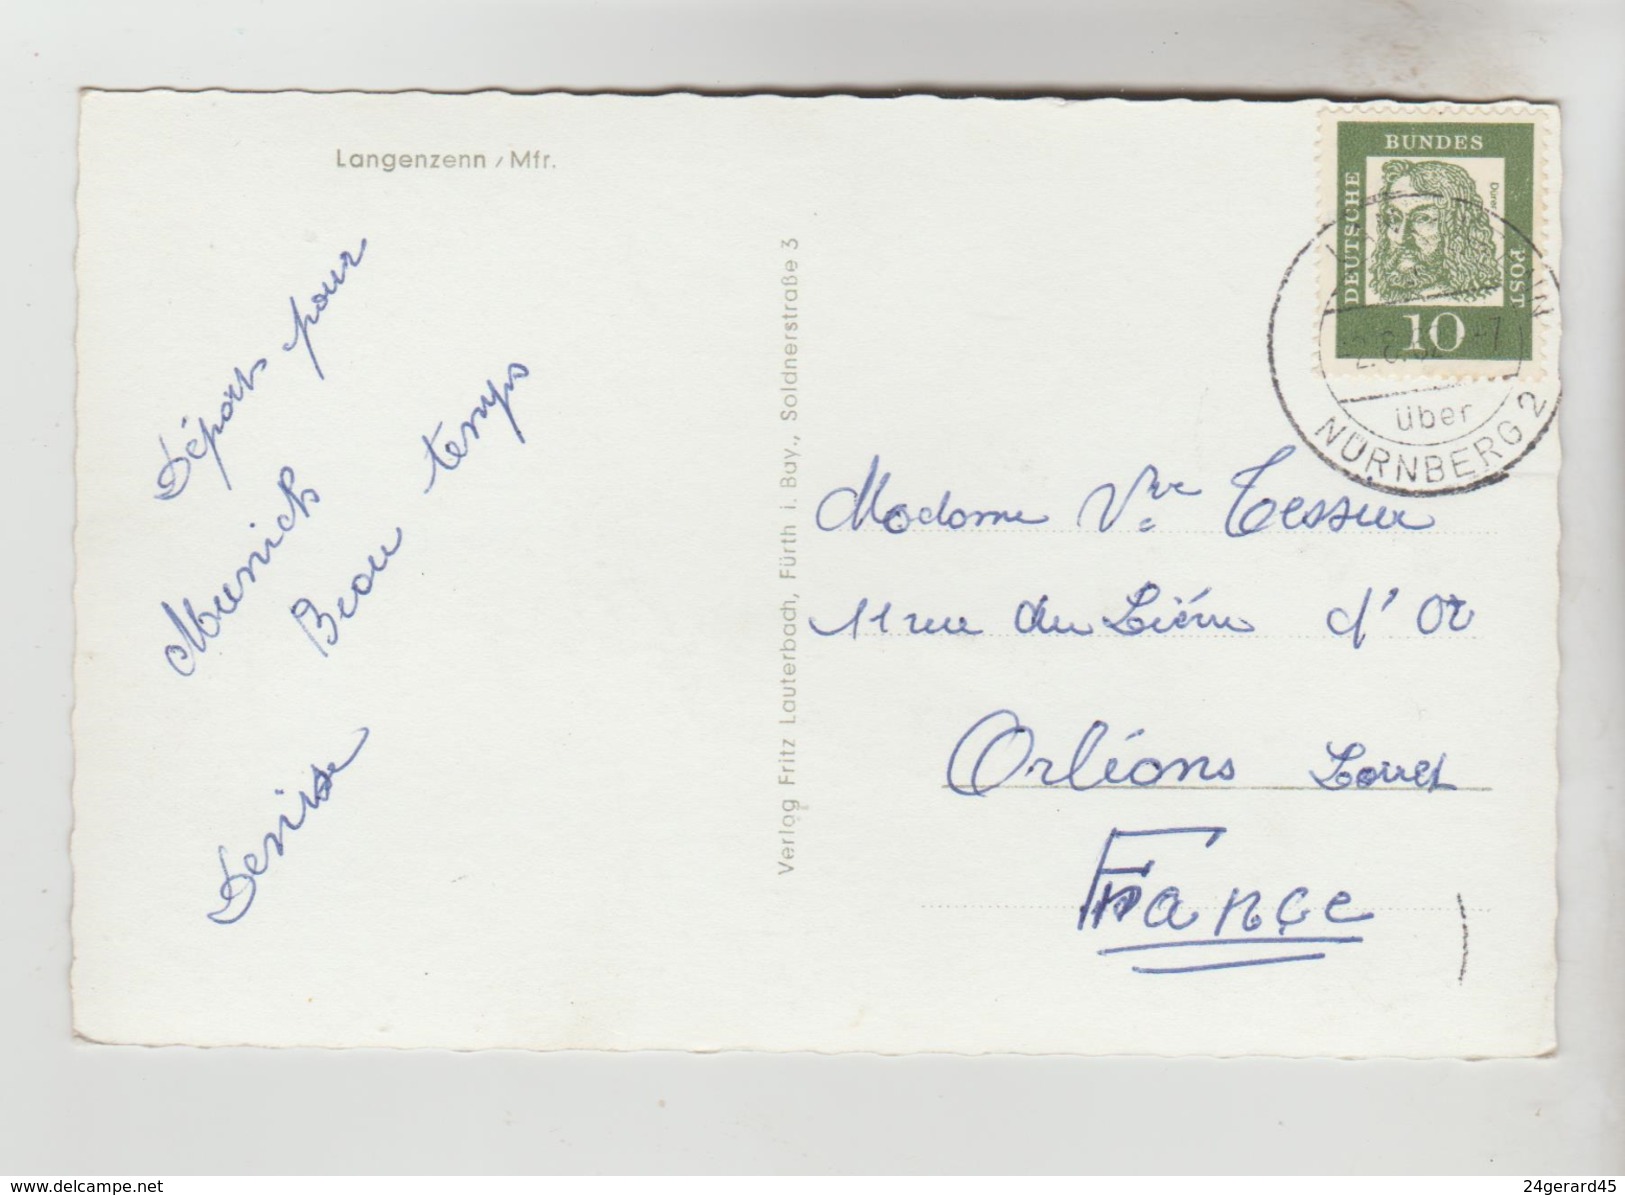 Langenzenn / Mfr.
Départ pour
Munich
Beau temps
Denise
Verlag Fritz Lauterbach, Fürth i. Bay., Soldnerstraße 3
BUNDES
DEUTSCHE
POST
Dürer
10
über
NÜRNBERG 2
Madame Vve Tessier
11 rue du Lièvre d'Or
Orléans Loiret
France
www.delcampe.net
24gerard45